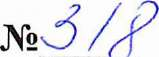 №318